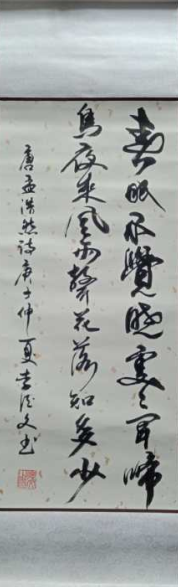 春眠不覺曉處々聞啼
鳥夜来風雨聲花落知多少
唐孟浩然詩庚子仲夏文书